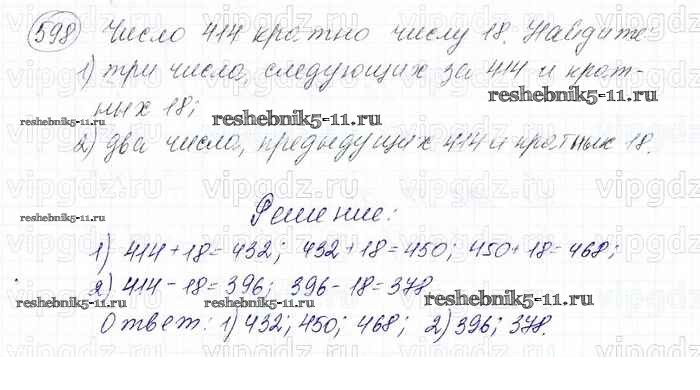 598 Число 414 кратно числу 18. Найдите:
1) три числа, следующих за 414 и крат-
ных 18;
2) два числа, предыдущих 414 и кратных 18.
Решение:
1) 414 + 18 = 432; 432 + 18 = 450; 450 + 18 = 468;
2) 414 - 18 = 396; 396 - 18 = 378.
Ответ: 1) 432; 450; 468; 2) 396; 378.
reshebnik5-11.ru
reshebnik5-11.ru
reshebnik5-11.ru
reshebnik5-11.ru
reshebnik5-11.ru
reshebnik5-11.ru
vipgdz.ru